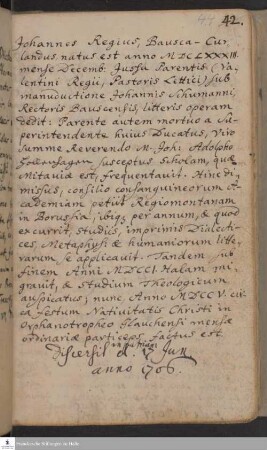 42.
Johannes Regius, Bausca-Cur-
landus, natus est anno MDCLXXXIII
mense Decemb. Jussu Parentis (Va-
lentini Regii, Pastoris Lettici) sub
manuductione Johannis Schumanni,
Rectoris Bauscensis, litteris operam
dedit: Parente autem mortuo a Su-
perintendente huius Ducatus, Viro
Summe Reverendo M. Joh. Adolpho
susceptus Scholam, quæ
Mitaviæ est, frequentavit. Hinc di-
missus, consilio consanguineorum A-
cademiam petiit Regiomontanam
in Borussia, ibiq; per annum, & quod
excurrit, studiis, imprimis Dialecti-
ces, Metaphys: & humaniorum litte-
rarum, se applicavit. Tandem sub
finem Anni MDCCI. Halam mi-
gravit, & Studium Theologicum
auspicatus; nunc Anno MDCCV. cir-
ca festum Nativitatis Christi in
Orphanotropheo Glauchensi mensæ
ordinariæ particeps factus est.
Discessit d. 17 Jun
anno 1706.